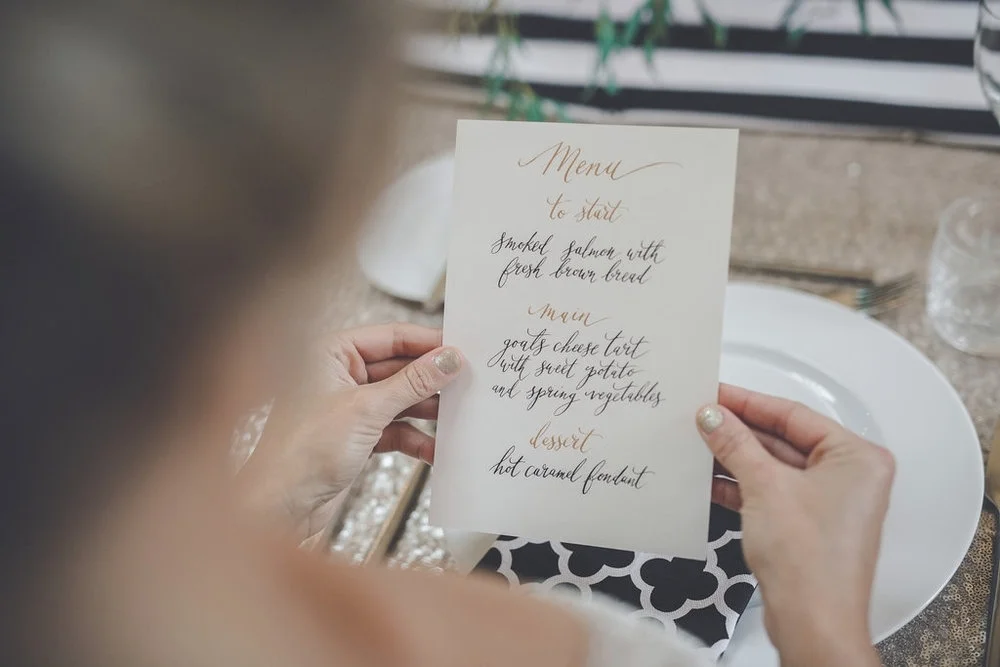 Menu
to start
smoked salmon with
fresh brown bread
main
goats cheese tart
with sweet potato
and spring vegetables
dessert
hot caramel fondant